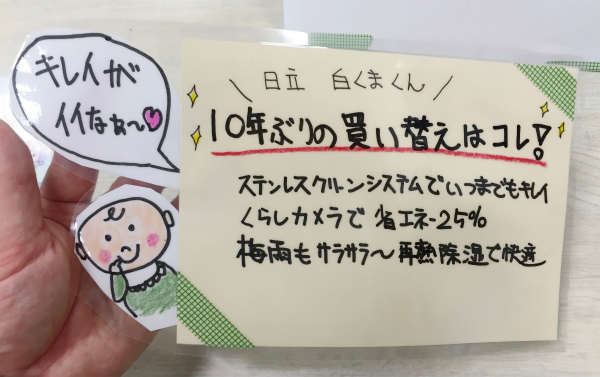 キレイが
イイなぁ〜
\ 日立 白くまくん /
10年ぶりの買い替えはコレ!
ステンレスクリーンシステムでいつまでもキレイ
くらしカメラで 省エネ-25%
梅雨もサラサラ〜再熱除湿で快適